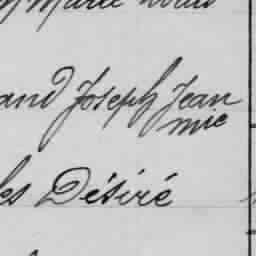 Marie Louis
and Joseph Jean
mie
les Désiré